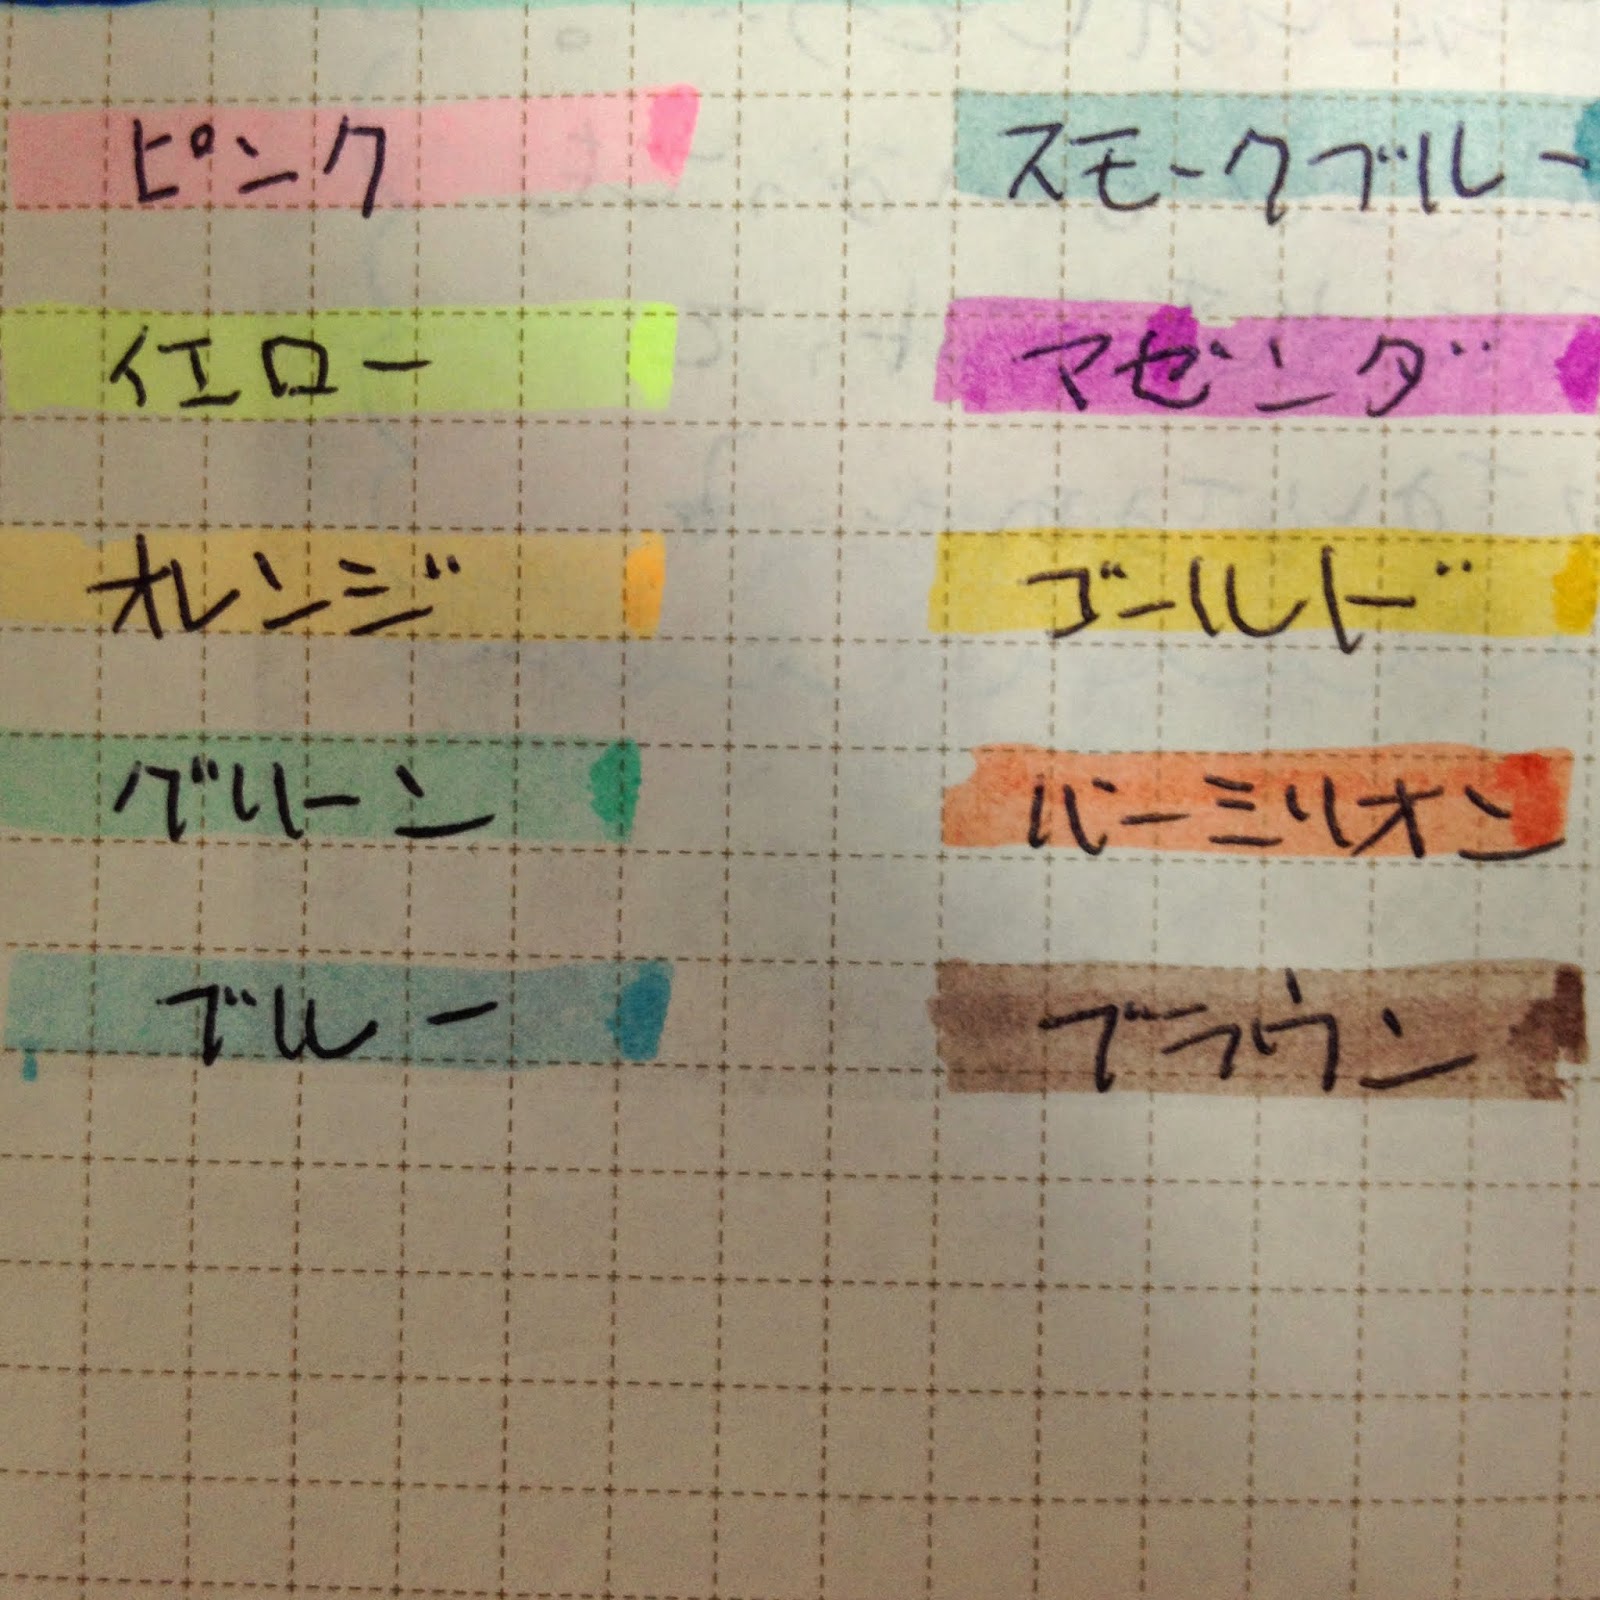 ピンク
イエロー
オレンジ
グリーン
ブルー
スモークブルー
マゼンダ
ゴールド
バーミリオン
ブラウン